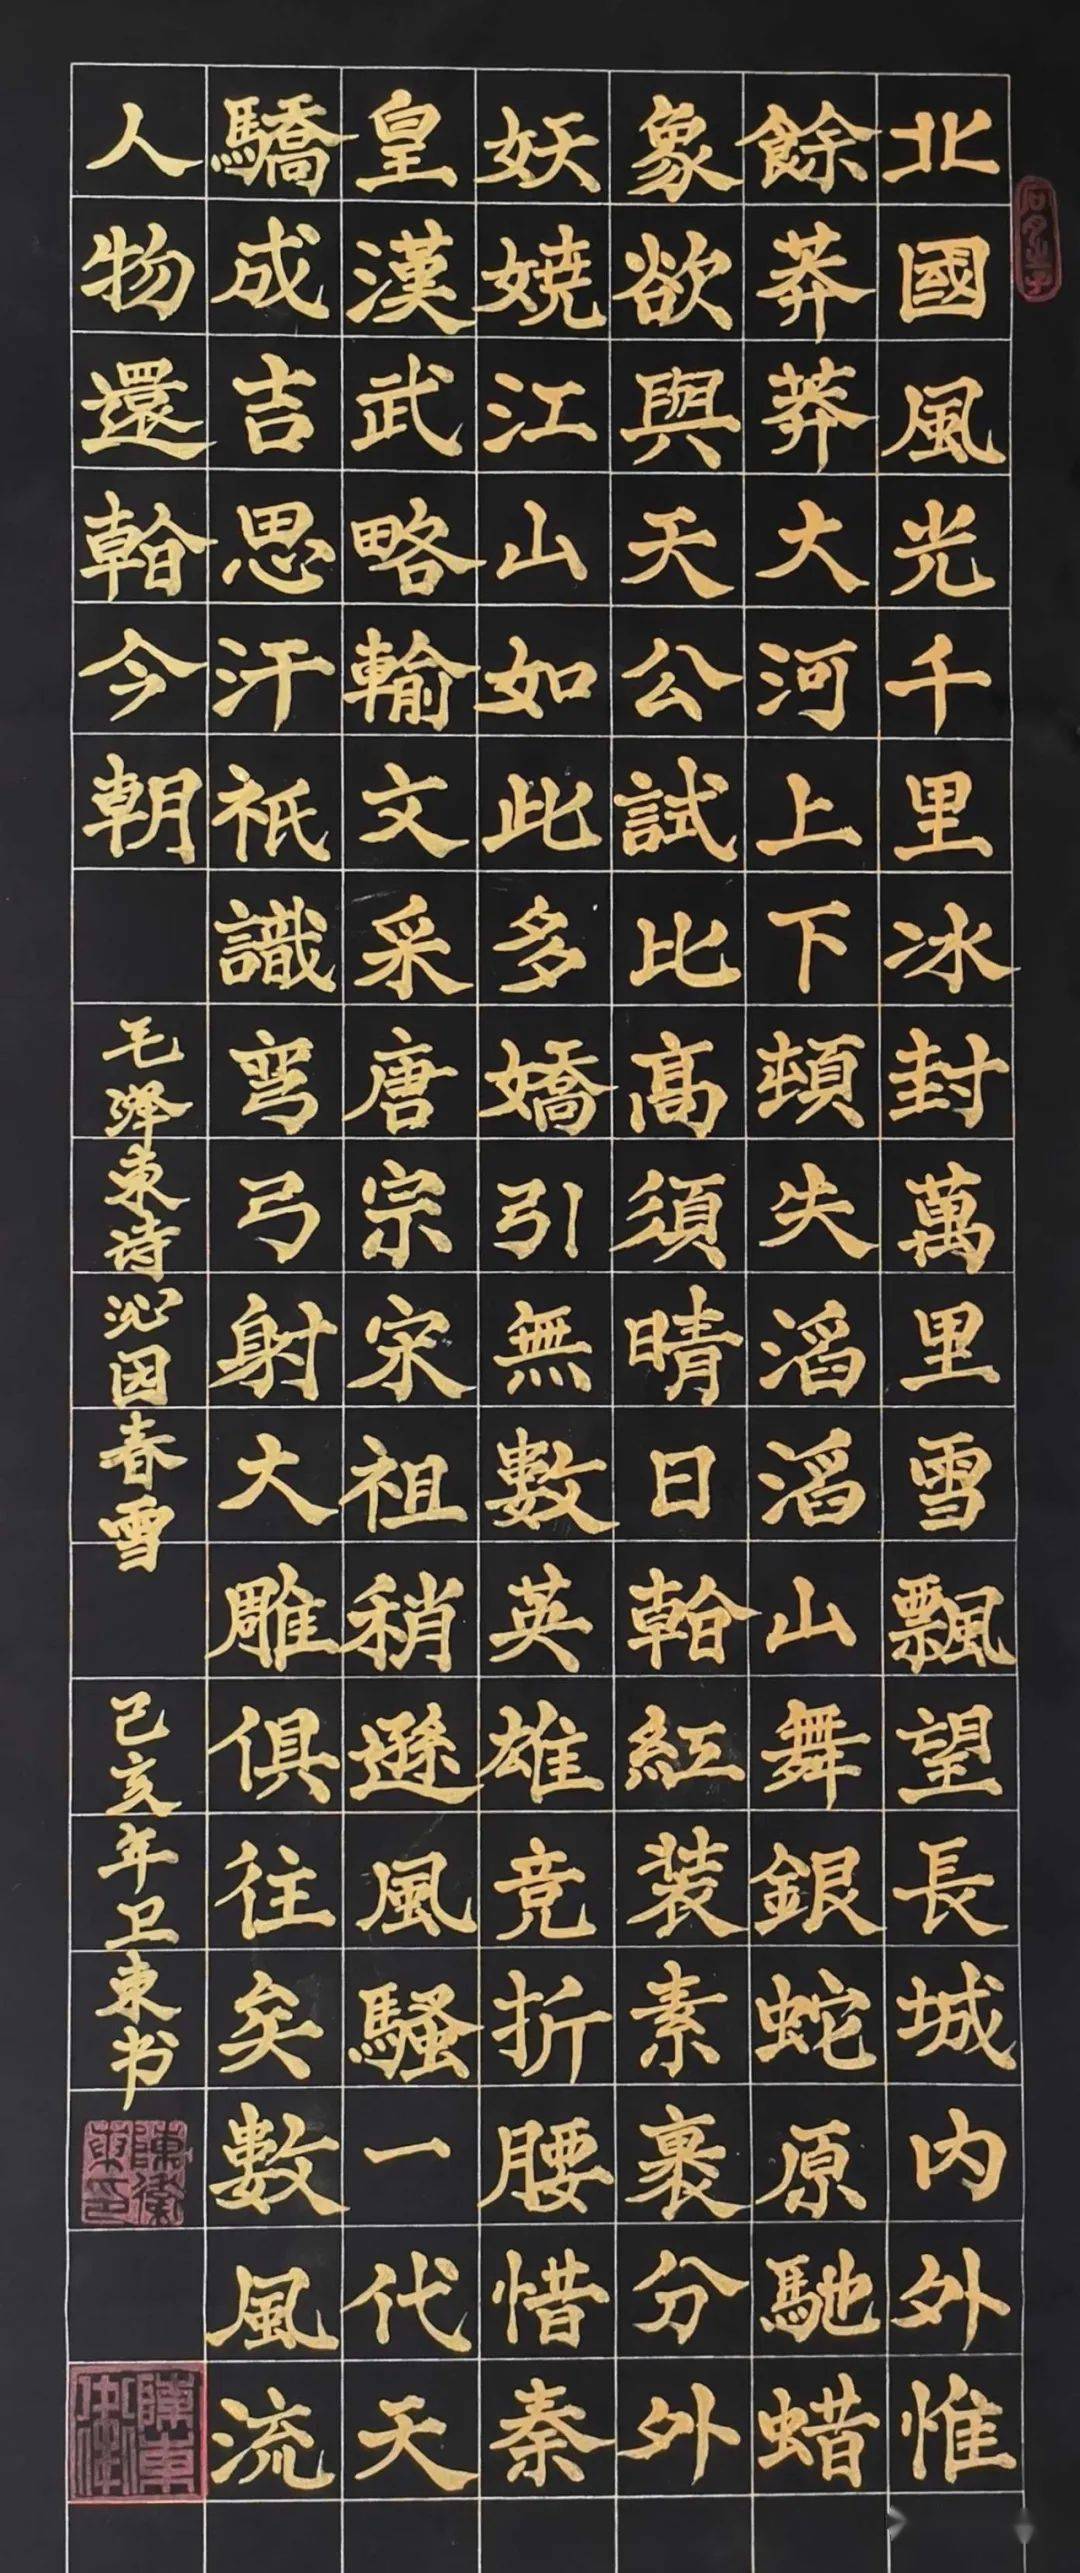 北國風光千里冰封萬里雪飄望長城内外惟
餘莽莽大河上下頓失滔滔山舞銀蛇原馳蜡
象欲與天公試比高須晴日看紅装素裹分外
妖娆江山如此多嬌引無數英雄竞折腰惜秦
皇漢武略輸文采唐宗宋祖稍遜風騷一代天
驕成吉思汗祇識弯弓射大雕俱往矣數風流
人物還看今朝
毛泽東诗沁园春雪
己亥年卫東书
陳衛東印